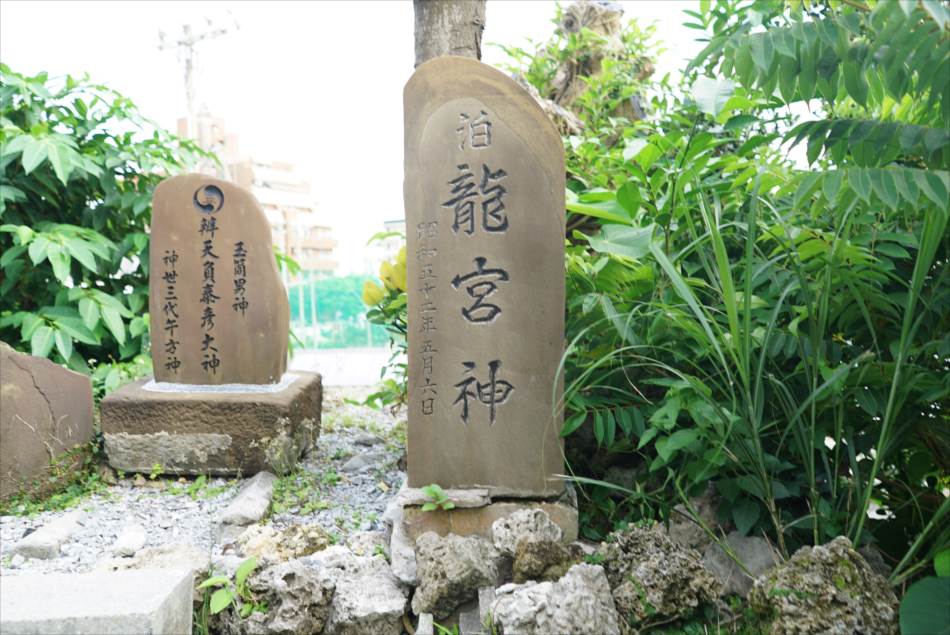 泊
龍宮神
昭和五十二年五月六日
玉筒男神
辨天負泰彦大神
神世三代午方神